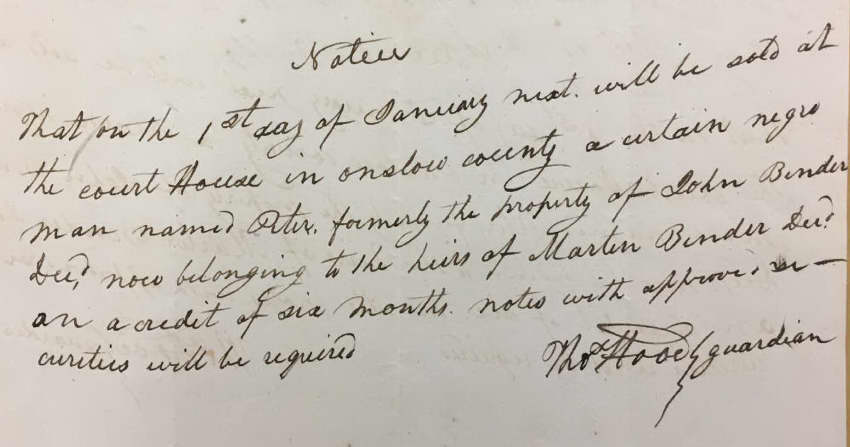 Notice
That on the 1st day of January next. will be sold at
the court House in onslow county a certain negro
man named Peter. formerly the property of John Bender
Decd, now belonging to the heirs of Marten Bender Decd
on a credit of six months. notes with approved se-
curities will be required
Thos Hood guardian